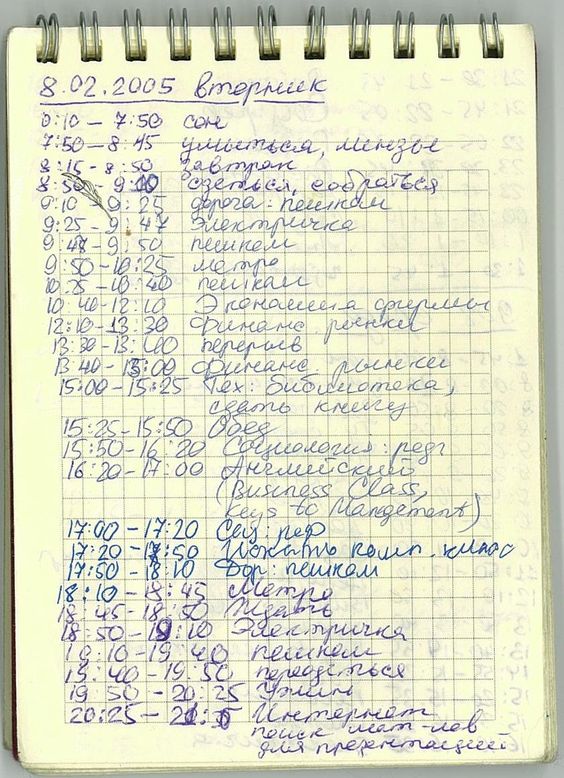 8.02.2005 вторник
0:10 – 7:50 сон
7:50 – 8:15 умыться, линзы
8:15 - 8:50 завтрак
8:50 - 9:10 одеться, собраться
9:10 - 9:25 дорога: пешком
9:25 - 9:47 электричка
9:48 – 9:50 пешком
9:50 – 10:25 метро
10:25 – 10:40 пешком
10:40 – 12:10 Экономика фирмы
12:10 – 13:30 Финанс. рынки
13:30 – 13:40 перерыв
13:40 – 15:00 Финанс. рынки
15:00 – 15:25 Тех: библиотека,
сдать книгу
15:25 – 15:50 Обед
15:50 – 16:20 Социология: реф
16:20 – 17:00 Английский
(Business Class,
Keys to Mangement)
17:00 – 17:20 Соц: реф
17:20 – 17:50 Искать комп. класс
17:50 – 18:10 Дор: пешком
18:10 – 18:45 Метро
18:45 – 18:50 Ждать
18:50 – 19:10 Электричка
19:10 – 19:40 пешком
19:40 – 19:50 переодеться
19:50 – 20:25 Ужин
20:25 – Интернет
поиск мат-лов
для презентаций